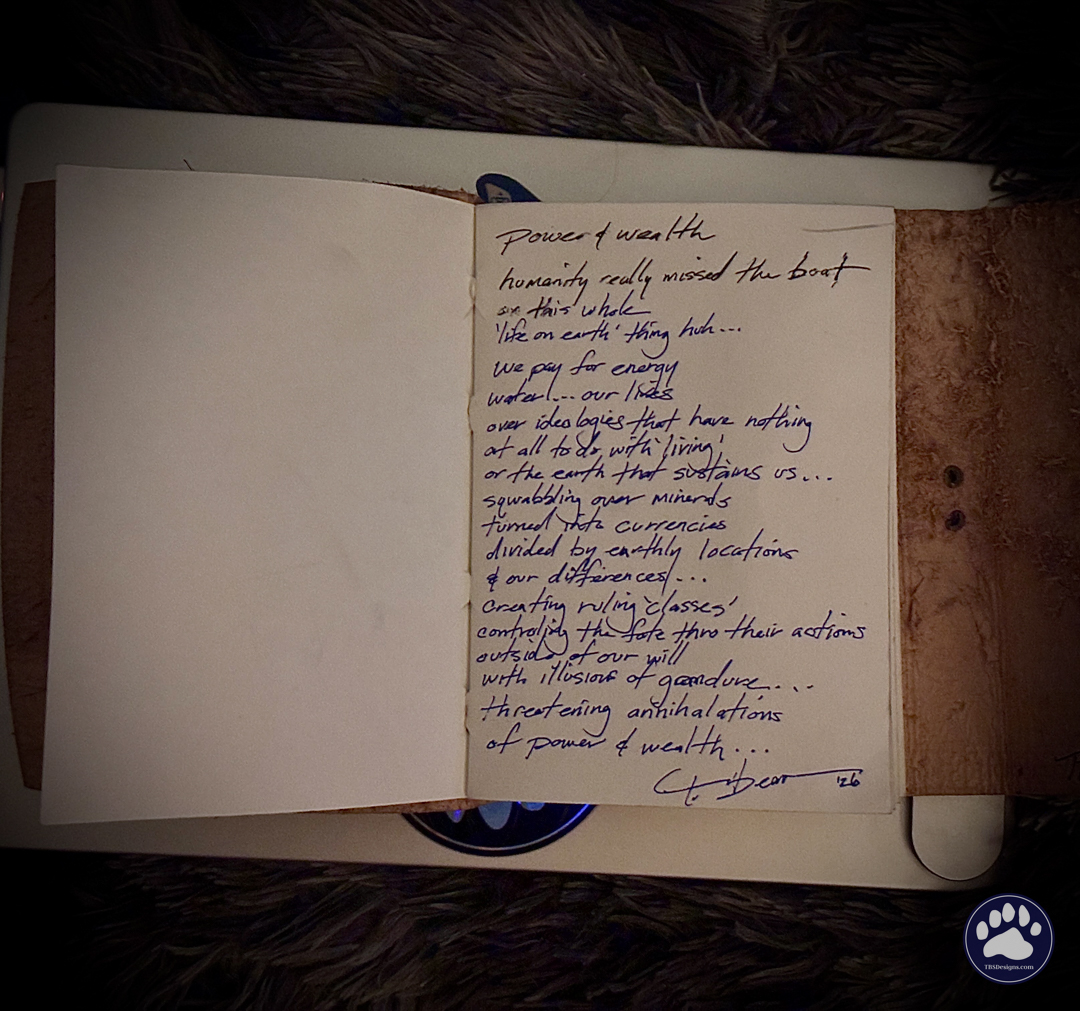 power & wealth
humanity really missed the boat
on this whole
'life on earth' thing huh...
we pay for energy
water... our lives
over ideologies that have nothing
at all to do with 'living'
or the earth that sustains us...
sqwabbling over minerals
turned into currencies
divided by earthly locations
& our differences...
creating ruling 'classes'
controling the fate thro their actions
outside of our will
with illusions of grandure...
threatening annihalations
of power & wealth...
'26
TBSDesigns.com